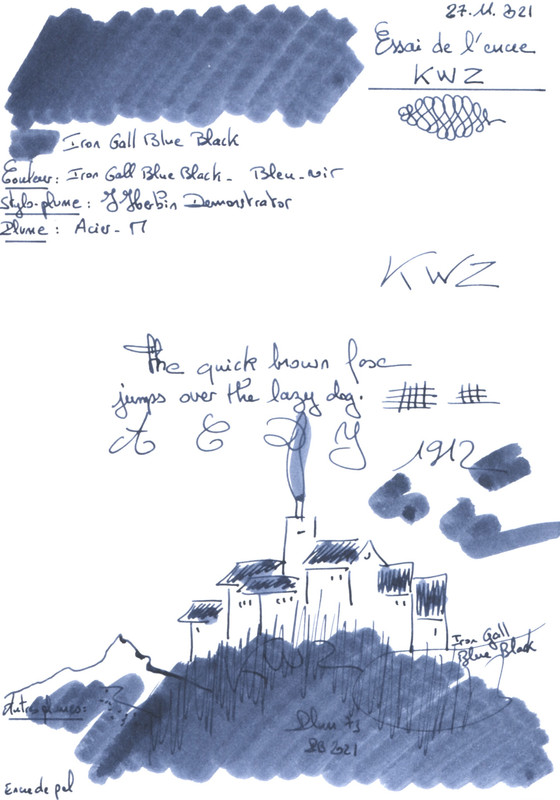 27.11.2021
Essai de l'encre
KWZ
Iron Gall Blue Black
Couleur: Iron Gall Blue Black - Bleu-noir
Stylo-plume: J Herbin Demonstrator
Plume: Acier - M
KWZ
The quick brown fox
jumps over the lazy dog.
A C D Y
1912
Iron Gall
Blue Black
KWZ
Autres plumes:
2021